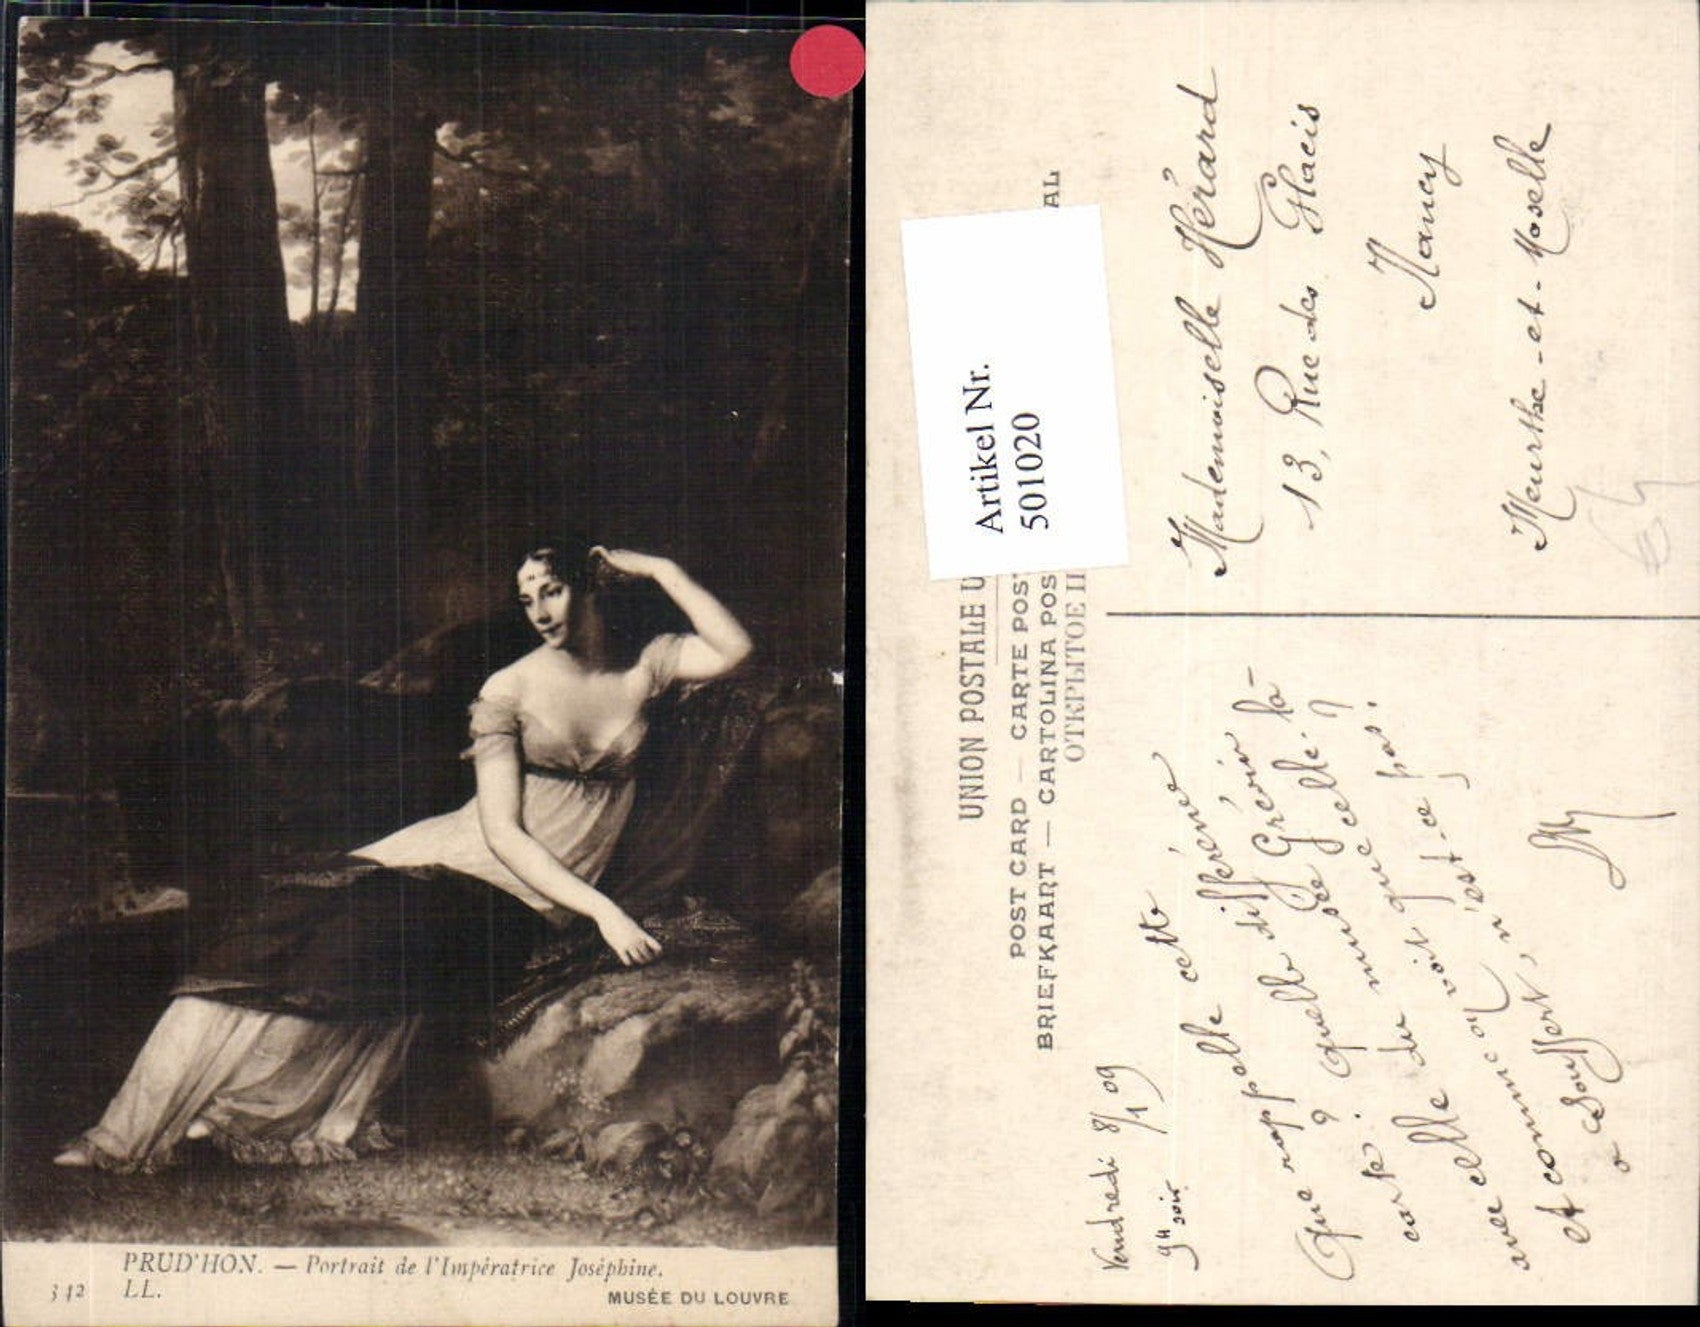 PRUD'HON. — Portrait de l'Impératrice Joséphine.
342 LL.
MUSÉE DU LOUVRE
UNION POSTALE U
AL
POST CARD — CARTE POST
BRIEFKAART — CARTOLINA POS
ОТКРЫТОЕ П
Artikel Nr.
501020
Mademoiselle Hérard
13, Rue des Glacis
Nancy
Meurthe-et-Moselle
Vendredi 8/1 09
9H soir
Que rappelle cette
? quelle différence
carte. Musée Grévin la-
celle du musée Grelle.?
avec celle voit que
et comme on n'est-ce pas.
a souffert,